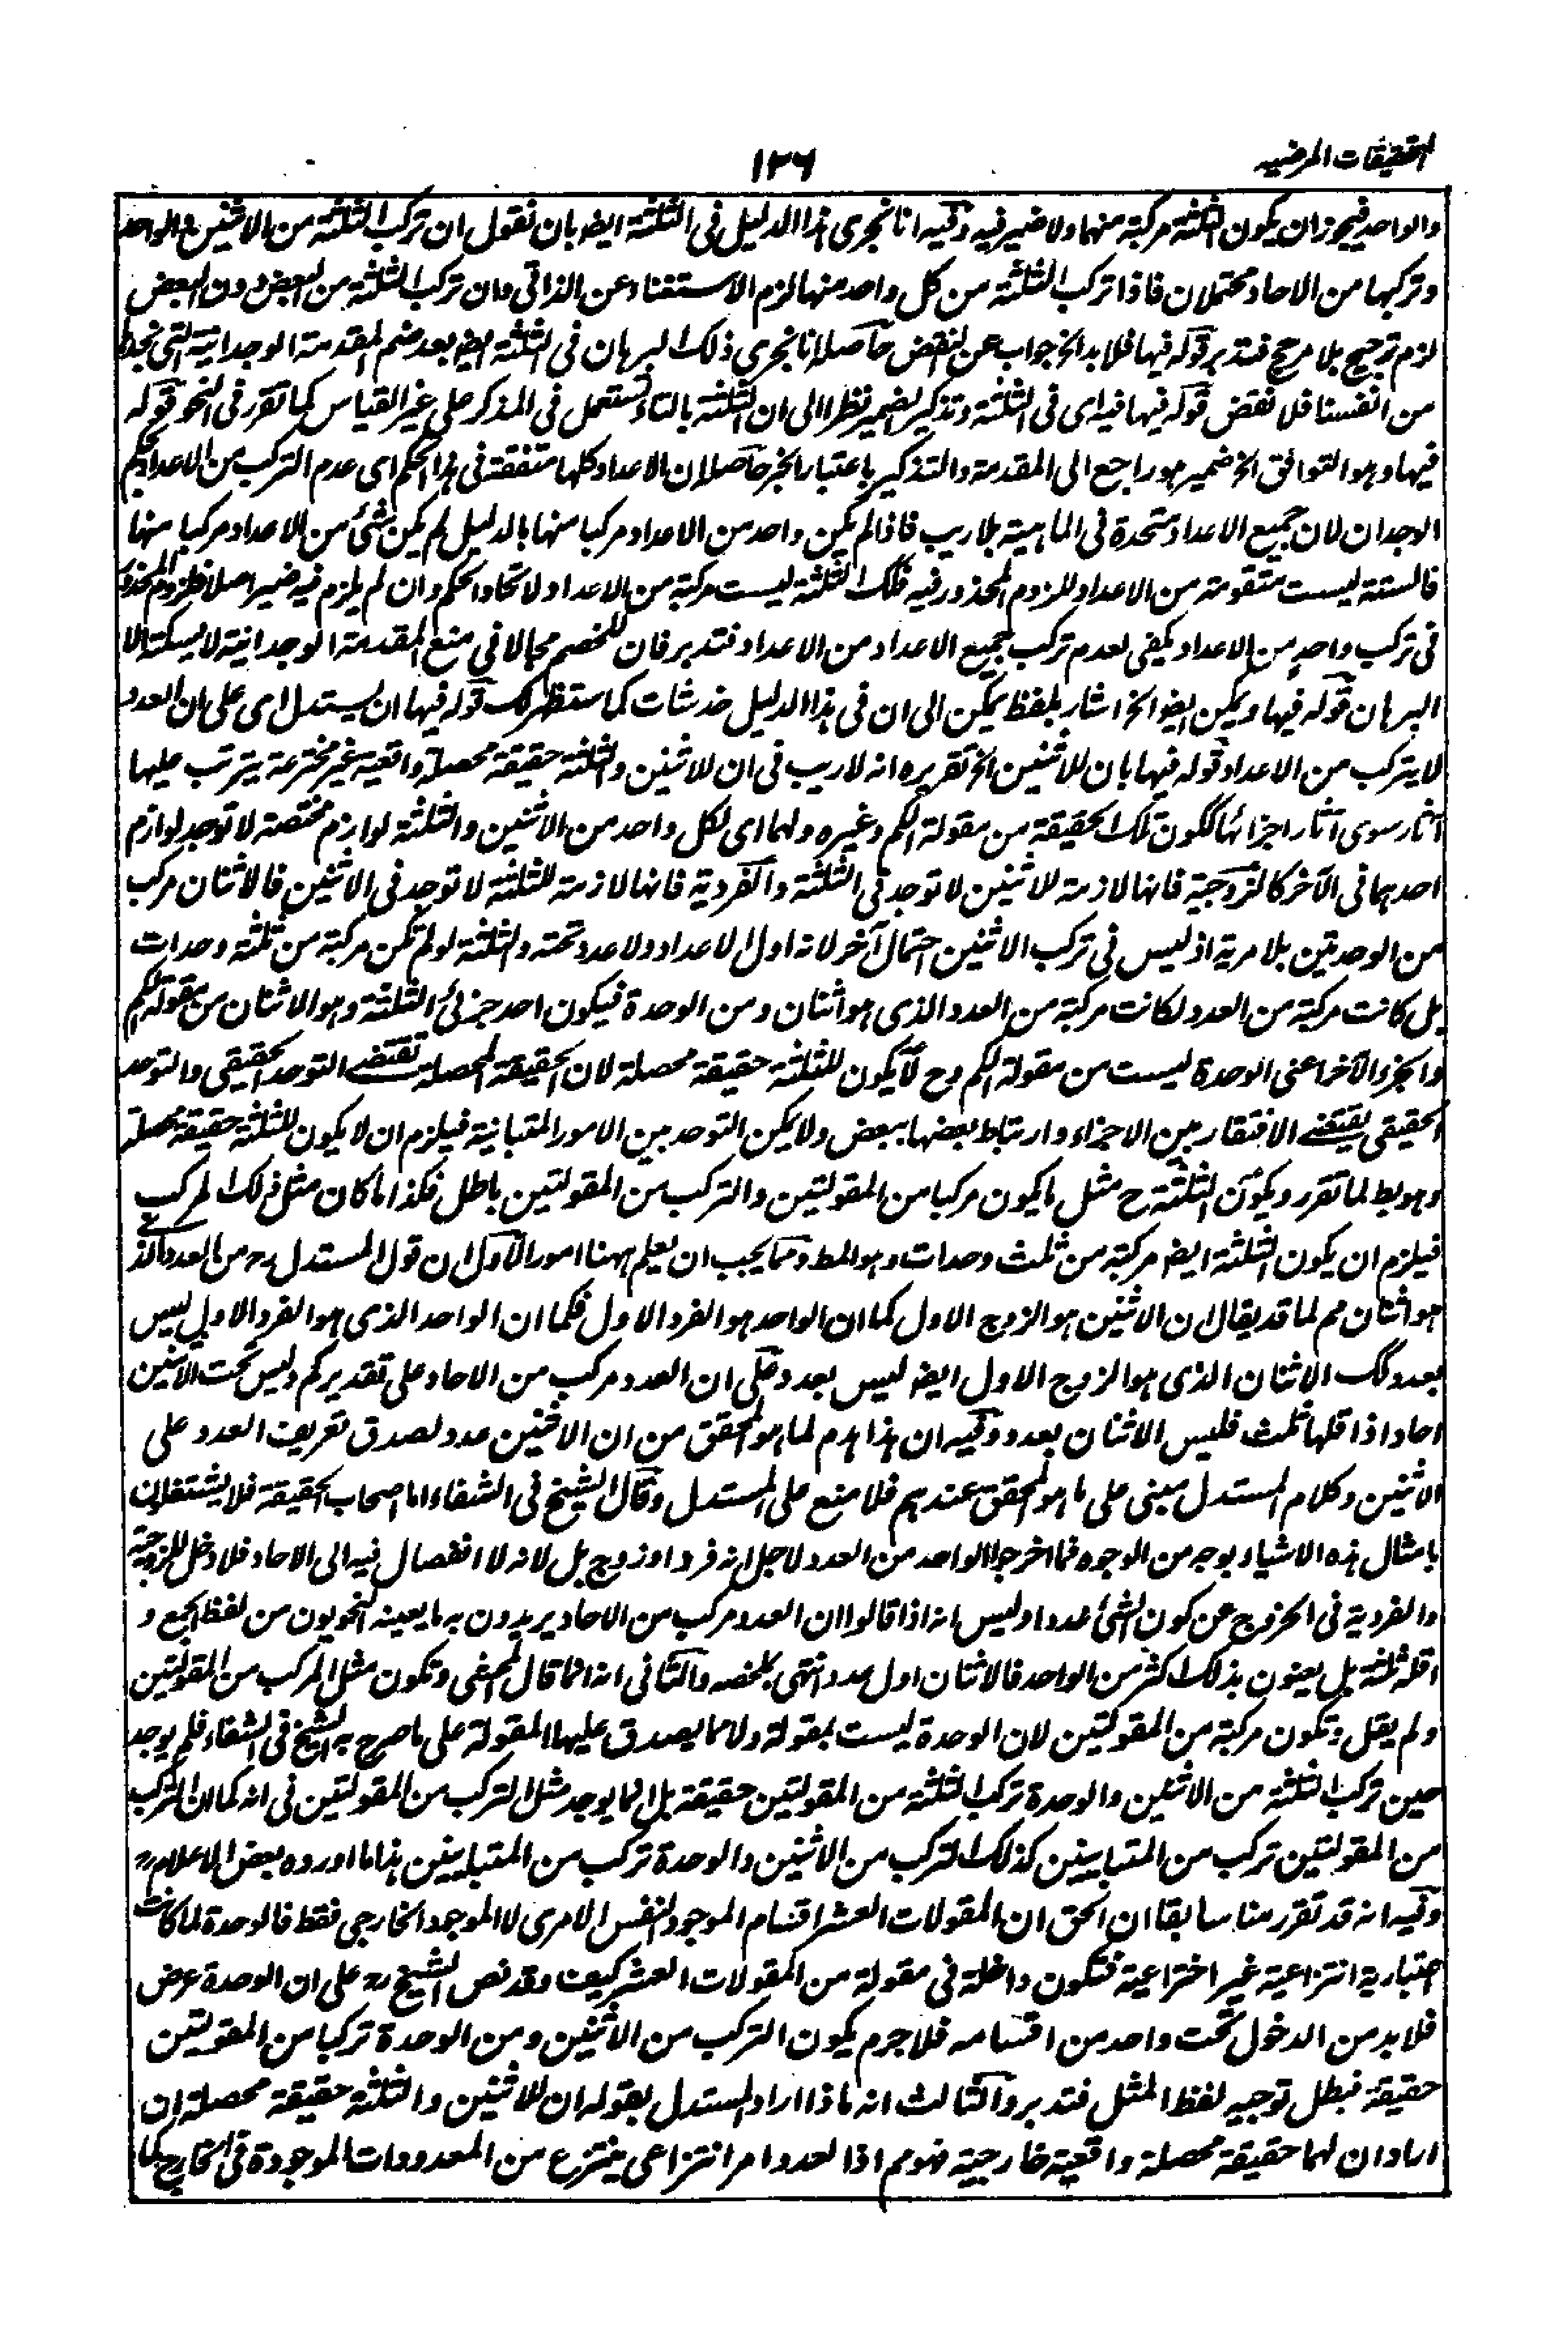 التحقيقات المرضيه
١٢٦
والواحد فيجوز ان يكون الثلثة مركبة منهما ولا ضير فيه وفيه انا نجرى هذا الدليل فى الثلثة ايضا بان نقول ان تركب الثلثة من الاثنين والواحد
وتركبها من الاحاد محتملان فاذا تركب الثلثة من كل واحد منها لزم الاستغناء عن الذاتى وان تركب الثلثة من البعض دون البعض
لزم ترجيح بلا مرجح فتدبر قوله فيها فلا بد الخ جواب عن النقض حاصله انا نجرى ذلك البرهان فى الثلثة ايضا بعد ضم المقدمة الوجدانية التى نجدها
من انفسنا فلا نقض قوله فيها فيه اى فى الثلثة وتذكير الضمير نظرا الى ان الثلثة بالتاء تستعمل فى المذكر على غير القياس كما تقرر فى النحو قوله
فيها وهو التوافق الخ ضمير هو راجع الى المقدمة والتذكير باعتبار الخبر حاصله ان الاعداد كلها متفقة فى هذا الحكم اى عدم التركب من الاعداد بحكم
الوجدان لان جميع الاعداد متحدة فى الماهية بلا ريب فاذا لم يكن واحد من الاعداد مركبا منها بالدليل لم يكن شئ من الاعداد مركبا منها
فالستة ليست متقومة من الاعداد للزوم المحذور فيه فكذلك الثلثة ليست مركبة من الاعداد لاتحاد الحكم وان لم يلزم فيه ضير اصلا فلزوم المحذور
فى تركب واحد من الاعداد يكفى لعدم تركب جميع الاعداد من الاعداد فتدبر فان للخصم مجالا فى منع المقدمة الوجدانية لا يسكته الا
البرهان قوله فيها ويمكن ايضا الخ اشار بلفظ يمكن الى ان فى هذا الدليل خدشات كما ستظهر لك قوله فيها ان يستدل اى على ان العدد
لا يتركب من الاعداد قوله فيها بان للاثنين الخ تقريره انه لا ريب فى ان للاثنين والثلثة حقيقة محصلة واقعية غير مخترعة يترتب عليها
آثار سوى آثار اجزائها لكون تلك الحقيقة من مقولة الكم وغيره ولهما اى لكل واحد من الاثنين والثلثة لوازم مختصة لا توجد لوازم
احدهما فى الآخر كالزوجية فانها لازمة للاثنين لا توجد فى الثلثة والفردية فانها لازمة للثلثة لا توجد فى الاثنين فالاثنان مركب
من الوحدتين بلا مرية اذ ليس فى تركب الاثنين احتمال آخر لانه اول الاعداد ولا عدد تحته والثلثة لو لم تكن مركبة من ثلثة وحدات
بل كانت مركبة من العدد لكانت مركبة من العدد الذى هو اثنان ومن الوحدة فيكون احد جزئى الثلثة وهو الاثنان من مقولة الكم
والجزء الآخر اعنى الوحدة ليست من مقولة الكم وح لا يكون للثلثة حقيقة محصلة لان الحقيقة المحصلة تقتضى التوحد الحقيقى والتوحد
الحقيقى يقتضى الافتقار بين الاجزاء وارتباط بعضها ببعض ولا يمكن التوحد بين الامور المتباينة فيلزم ان لا يكون للثلثة حقيقة محصلة
وهو بط لما تقرر ويكون الثلثة ح مثل ما يكون مركبا من المقولتين والتركب من المقولتين باطل فكذا ما كان مثل ذلك المركب
فيلزم ان يكون الثلثة ايضا مركبة من ثلث وحدات وهو المط ومما يجب ان يعلم ههنا امور الاول ان قول المستدل رح من العدد الذى
هو اثنان مم لما قد يقال ان الاثنين هو الزوج الاول كما ان الواحد هو الفرد الاول فكما ان الواحد الذى هو الفرد الاول ليس
بعدد كك الاثنان الذى هو الزوج الاول ايضا ليس بعدد وعلى ان العدد مركب من الاحاد على تقديركم وليس تحت الاثنين
احاد اذ اقلها ثلث فليس الاثنان بعدد وفيه ان هذا هدم لما هو المحقق من ان الاثنين عدد لصدق تعريف العدد على
الاثنين وكلام المستدل مبنى على ما هو المحقق عندهم فلا منع على المستدل وقال الشيخ فى الشفاء اما اصحاب الحقيقة فلا يشتغلون
بامثال هذه الاشياء بوجه من الوجوه فما اخرجوا الواحد من العدد لاجل انه فرد او زوج بل لانه لا انفصال فيه الى الاحاد فلا دخل للزوجية
والفردية فى الخروج عن كون الشئ عددا وليس انه اذا قالوا ان العدد مركب من الاحاد يريدون به ما يعينه النحويون من لفظ الجمع و
اقله ثلثة بل يعنون بذلك اكثر من الواحد فالاثنان اول عدد انتهى بلخصه والثانى انه انما قال المحشى وتكون مثل المركب من المقولتين
ولم يقل وتكون مركبة من المقولتين لان الوحدة ليست بمقولة ولا مما يصدق عليها المقولة على ما صرح به الشيخ فى الشفاء فلم يوجد
حين تركب الثلثة من الاثنين والوحدة تركب الثلثة من المقولتين حقيقة بل انما يوجد مثل التركب من المقولتين فى انه كما ان التركب
من المقولتين تركب من المتباينين كذلك التركب من الاثنين والوحدة تركب من المتباينين هذا ما اورده بعض الاعلام رح
وفيه انه قد تقرر منا سابقا ان الحق ان المقولات العشر اقسام الموجود النفس الامرى لا الموجود الخارجى فقط فالوحدة لما كانت
اعتبارية انتزاعية غير اختراعية فتكون داخلة فى مقولة من المقولات العشر كيف وقد نص الشيخ رح على ان الوحدة عرض
فلا بد من الدخول تحت واحد من اقسامه فلا جرم يكون التركب من الاثنين ومن الوحدة تركبا من المقولتين
حقيقة فبطل توجيه لفظ المثل فتدبر والثالث انه ماذا اراد المستدل بقوله ان للاثنين والثلثة حقيقة محصلة ان
اراد ان لهما حقيقة محصلة واقعية خارجية فهو مم اذ العدد امر انتزاعى ينتزع من المعدودات الموجودة فى الخارج كما